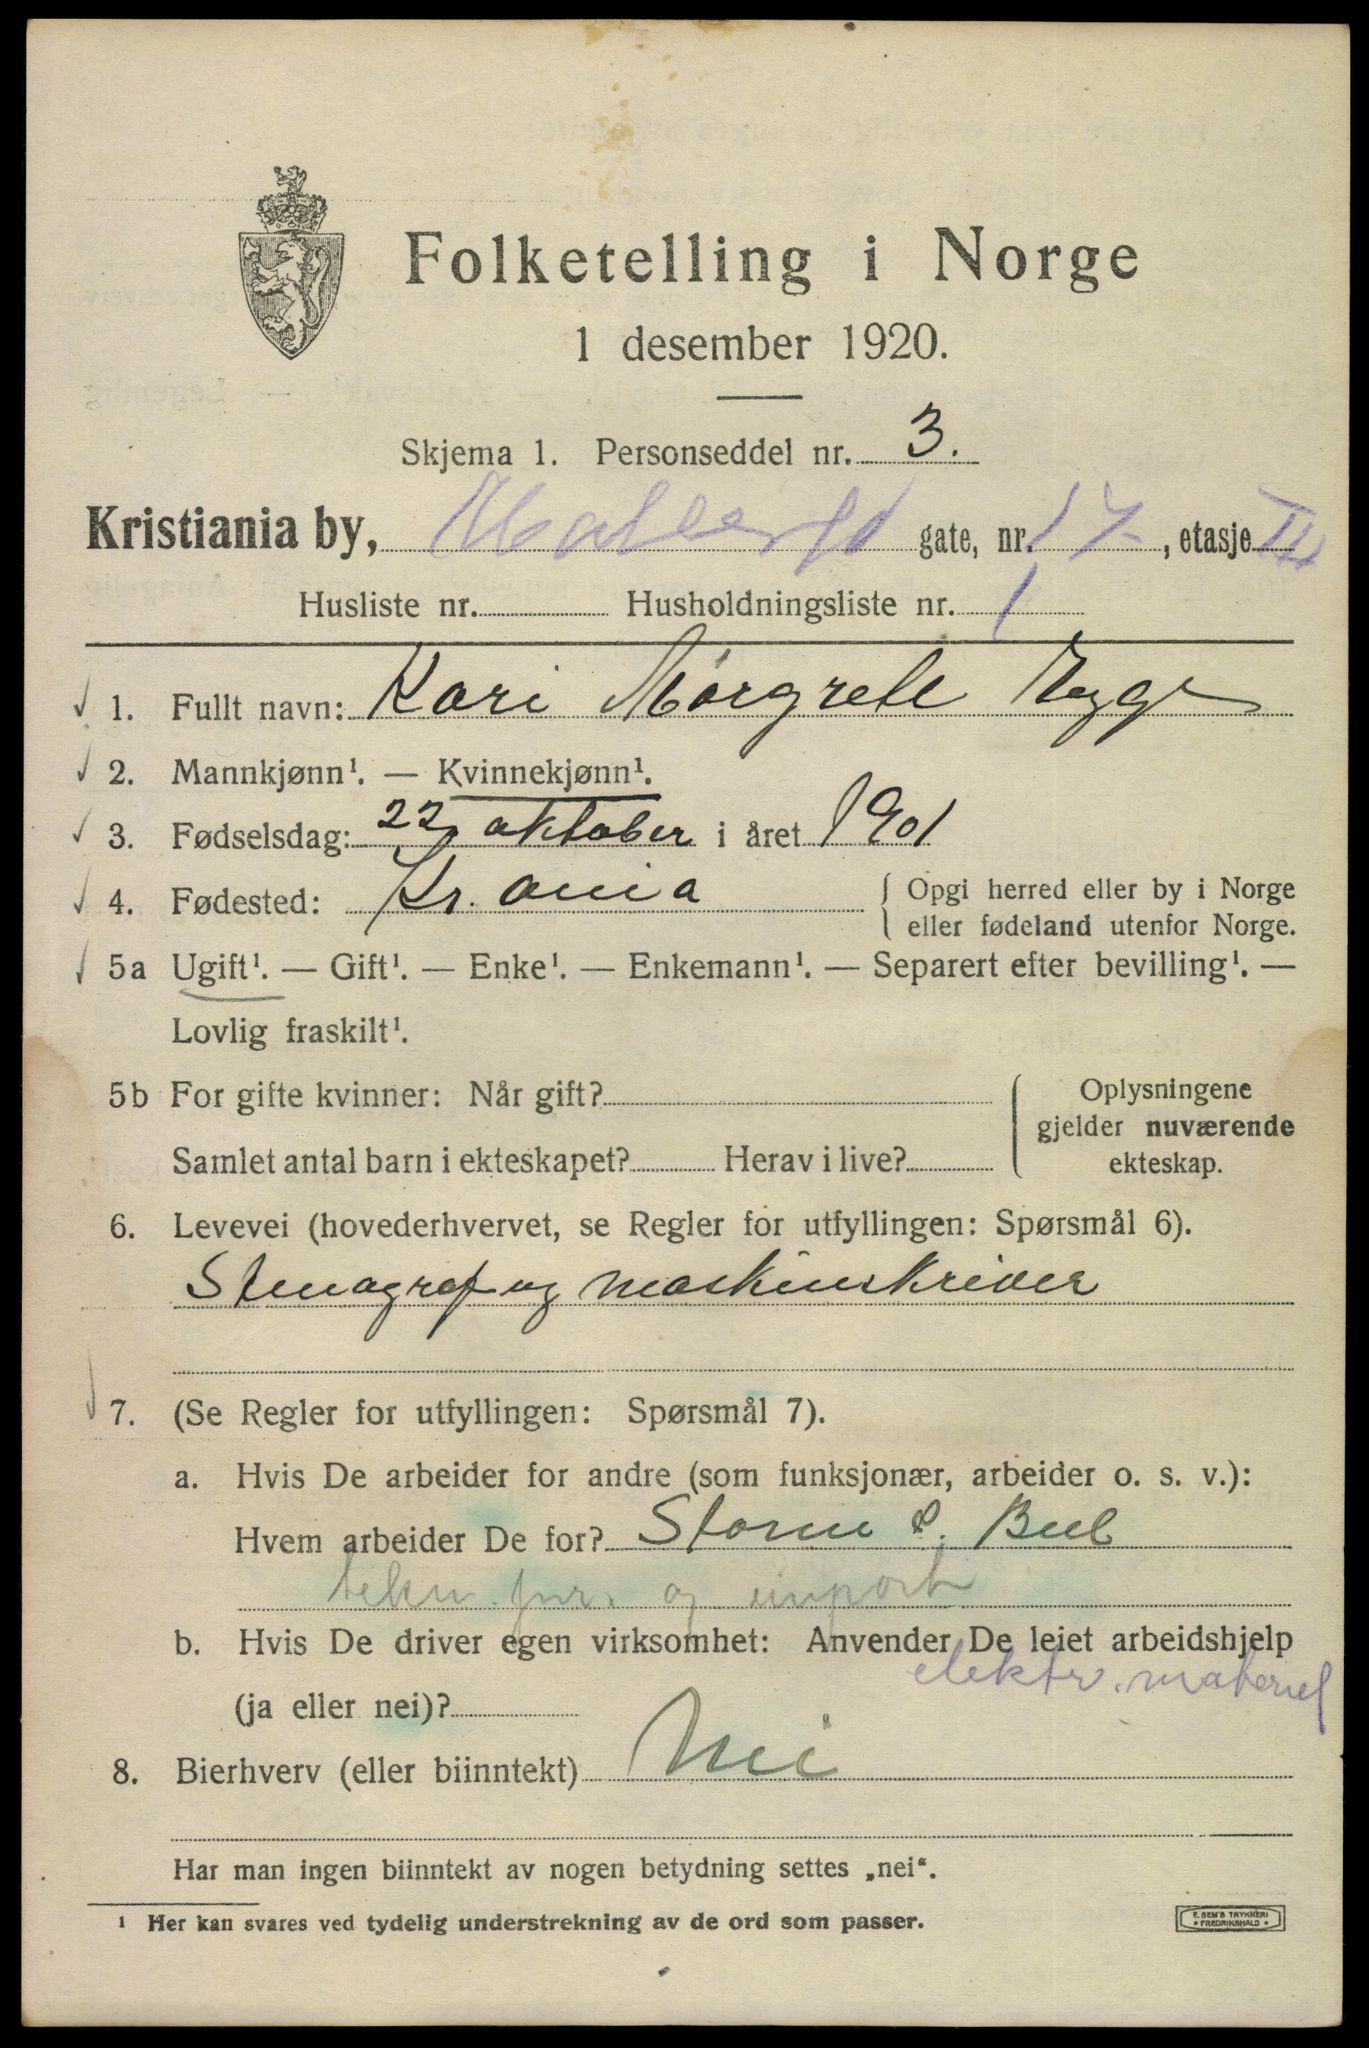 Folketelling i Norge
1 desember 1920.
Skjema 1. Personseddel nr. 3.
Kristiania by, gate, nr. 17, etasje III
Husliste nr. Husholdningsliste nr. 1
1. Fullt navn: Kari Margrete
2. Mannkjønn¹. — Kvinnekjønn¹.
3. Fødselsdag: 22 oktober i året 1901
4. Fødested: Kr.ania { Opgi herred eller by i Norge
eller fødeland utenfor Norge.
5a Ugift¹. — Gift¹. — Enke¹. — Enkemann¹. — Separert efter bevilling¹. —
Lovlig fraskilt¹.
5b For gifte kvinner: Når gift? { Oplysningene
gjelder nuværende
Samlet antal barn i ekteskapet? Herav i live? ekteskap.
6. Levevei (hovederhvervet, se Regler for utfyllingen: Spørsmål 6).
Stenograf og maskinskriver
7. (Se Regler for utfyllingen: Spørsmål 7).
a. Hvis De arbeider for andre (som funksjonær, arbeider o. s. v.):
Hvem arbeider De for? Storm & Bull
tekn. og import
b. Hvis De driver egen virksomhet: Anvender De leiet arbeidshjelp
elektr. materiel
(ja eller nei)?
8. Bierhverv (eller biinntekt) Nei
Har man ingen biinntekt av nogen betydning settes „nei“.
¹ Her kan svares ved tydelig understrekning av de ord som passer.
E. SEM'S TRYKKERI
FREDRIKSHALD